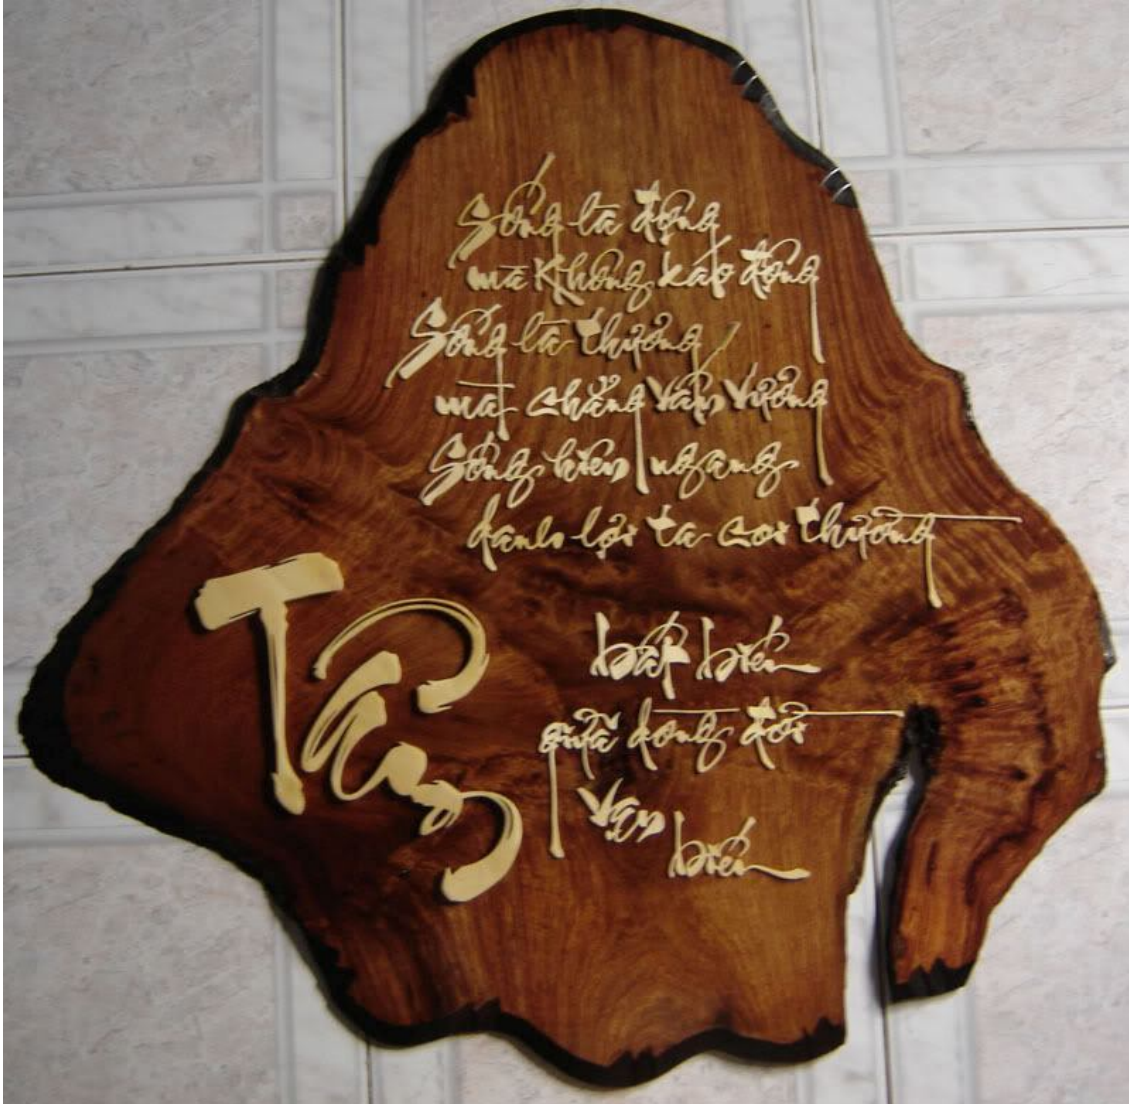 Sống là động
mà không xao động
Sống là thương
mà chẳng vấn vương
Sống hiên ngang
danh lợi ta coi thường
Tâm
bất biến
giữa dòng đời
vạn
biến